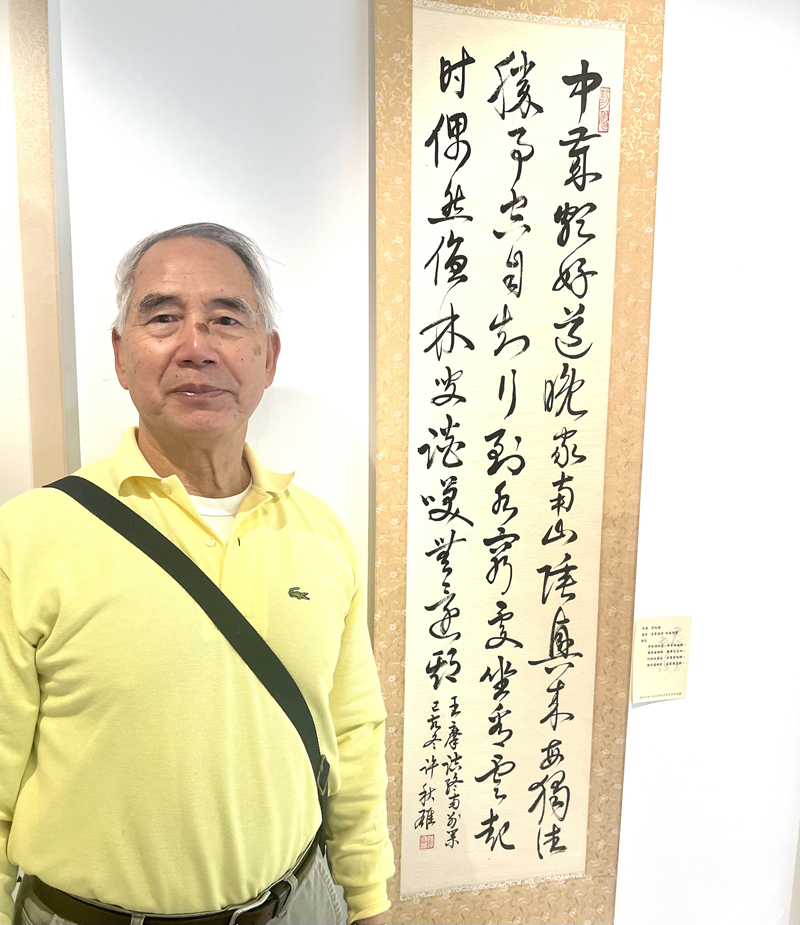 中歲頗好道晚家南山陲興來每獨往
勝事空自知行到水窮處坐看雲起
時偶然值林叟談笑無還期
王摩詰終南別業
己亥冬許秋雄